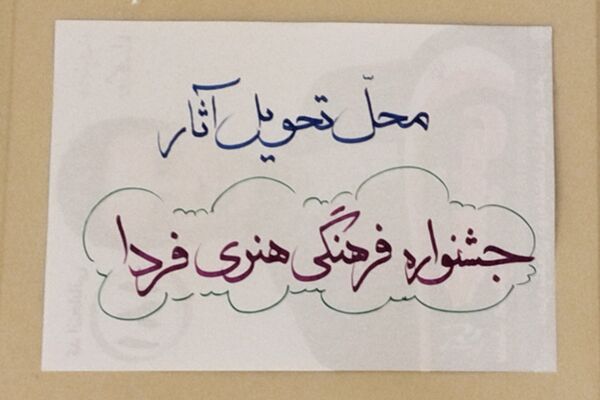 محلّ تحویل آثار
جشنواره فرهنگی هنری فردا